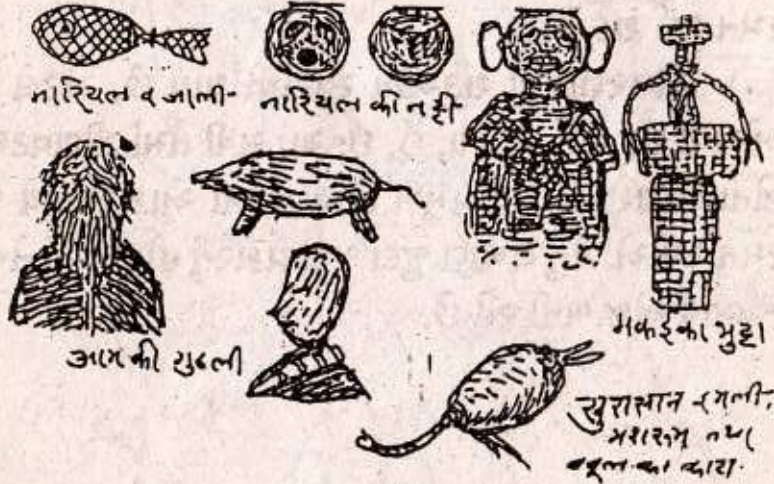 नारियल व जाली-
नारियल की नट्टी-
आम की गुठली
मकई का भुट्टा
खुरासान इमली,
मशरूम तथा
बबूल का कांटा.